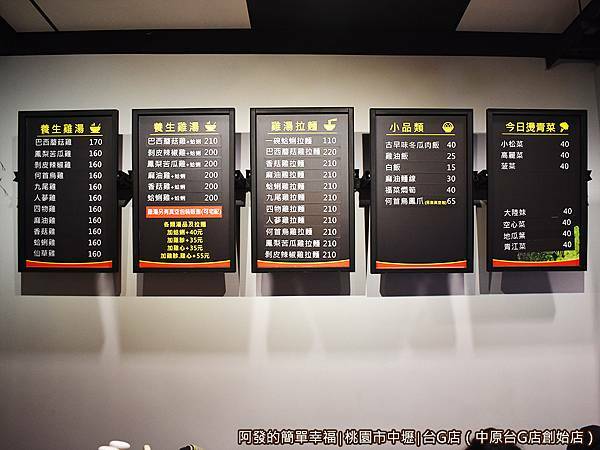 養生雞湯
巴西蘑菇雞 170
鳳梨苦瓜雞 160
剝皮辣椒雞 160
何首烏雞 160
九尾雞 160
人蔘雞 160
四物雞 160
麻油雞 160
香菇雞 160
蛤蜊雞 160
仙草雞 160
養生雞湯
巴西蘑菇雞+蛤蜊 210
剝皮辣椒雞+蛤蜊 200
鳳梨苦瓜雞+蛤蜊 200
麻油雞+蛤蜊 200
香菇雞+蛤蜊 200
蛤蜊雞+蛤蜊 200
雞湯另有真空包裝販售(可宅配)
各類湯品及拉麵
加蛤蜊+40元
加雞胗+35元
加雞心+35元
加雞胗.雞心+55元
雞湯拉麵
一碗蛤蜊拉麵 110
巴西蘑菇雞拉麵 220
香菇雞拉麵 210
麻油雞拉麵 210
蛤蜊雞拉麵 210
九尾雞拉麵 210
四物雞拉麵 210
人蔘雞拉麵 210
何首烏雞拉麵 210
鳳梨苦瓜雞拉麵 210
剝皮辣椒雞拉麵 210
小品類
古早味冬瓜肉飯 40
雞油飯 25
白飯 15
麻油麵線 40
福菜燜筍 40
何首烏鳳爪 65
今日燙青菜
小松菜 40
高麗菜 40
菠菜 40
大陸妹 40
空心菜 40
地瓜葉 40
青江菜 40
阿發的簡單幸福|桃園市中壢|台G店(中原台G店創始店)